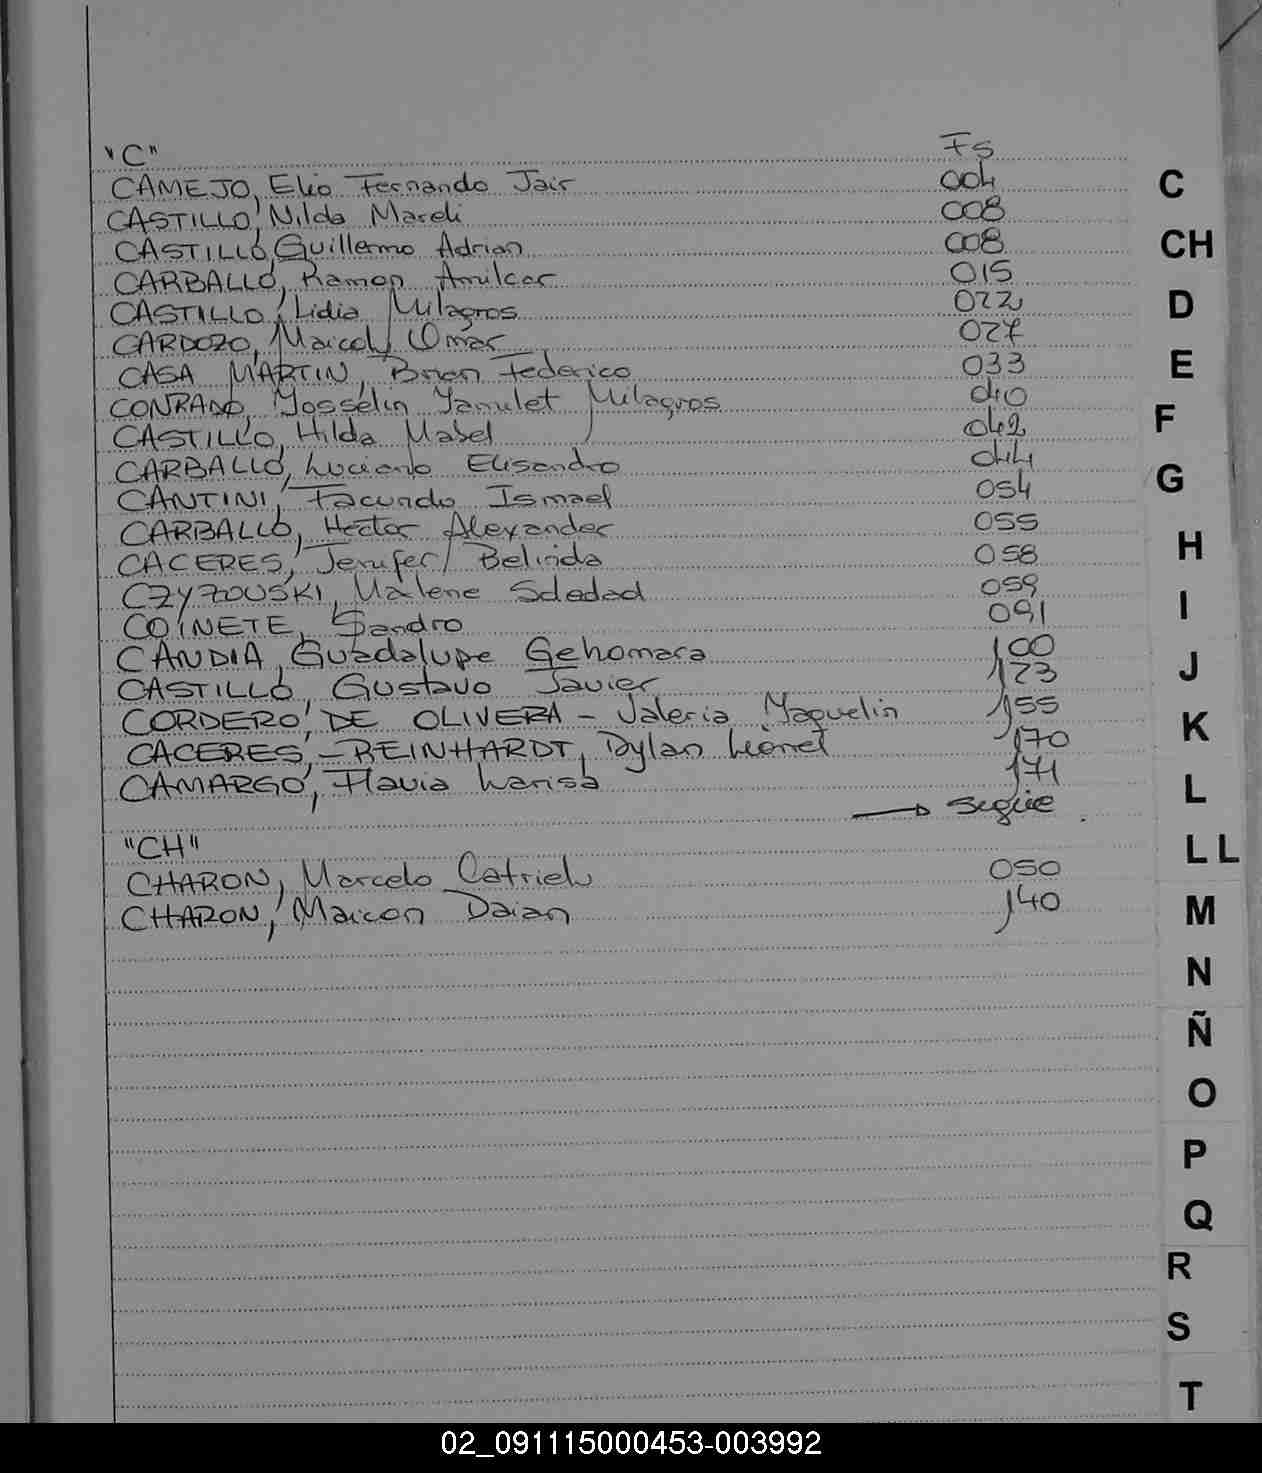 "C" Fs
CAMEJO, Elio Fernando Jair 004
CASTILLO, Nilda Mareli 008
CASTILLO, Guillermo Adrian 008
CARBALLO, Ramon Amilcar 015
CASTILLO, Lidia Milagros 022
CARDOZO, Maicol Omar 027
CASA MARTIN, Brian Federico 033
CONRADO, Yosselin Yamulet Milagros 040
CASTILLO, Hilda Mabel 042
CARBALLO, Luciano Elisandro 044
CANTINI, Facundo Ismael 054
CARBALLO, Hector Alexander 055
CACERES, Jenifer Belinda 058
CZYZOUSKI, Malene Soledad 059
COINETE, Sandro 091
CANDIA, Guadalupe Gehomara 100
CASTILLO, Gustavo Javier 123
CORDERO, DE OLIVERA - Valeria Yaquelin 155
CACERES, - REINHARDT, Dylan Leonel 170
CAMARGO, Flavia Larisa 171
→ sigue
"CH"
CHARON, Marcelo Catriel 050
CHARON, Maicon Daian 140
C
CH
D
E
F
G
H
I
J
K
L
LL
M
N
Ñ
O
P
Q
R
S
T
02_091115000453-003992